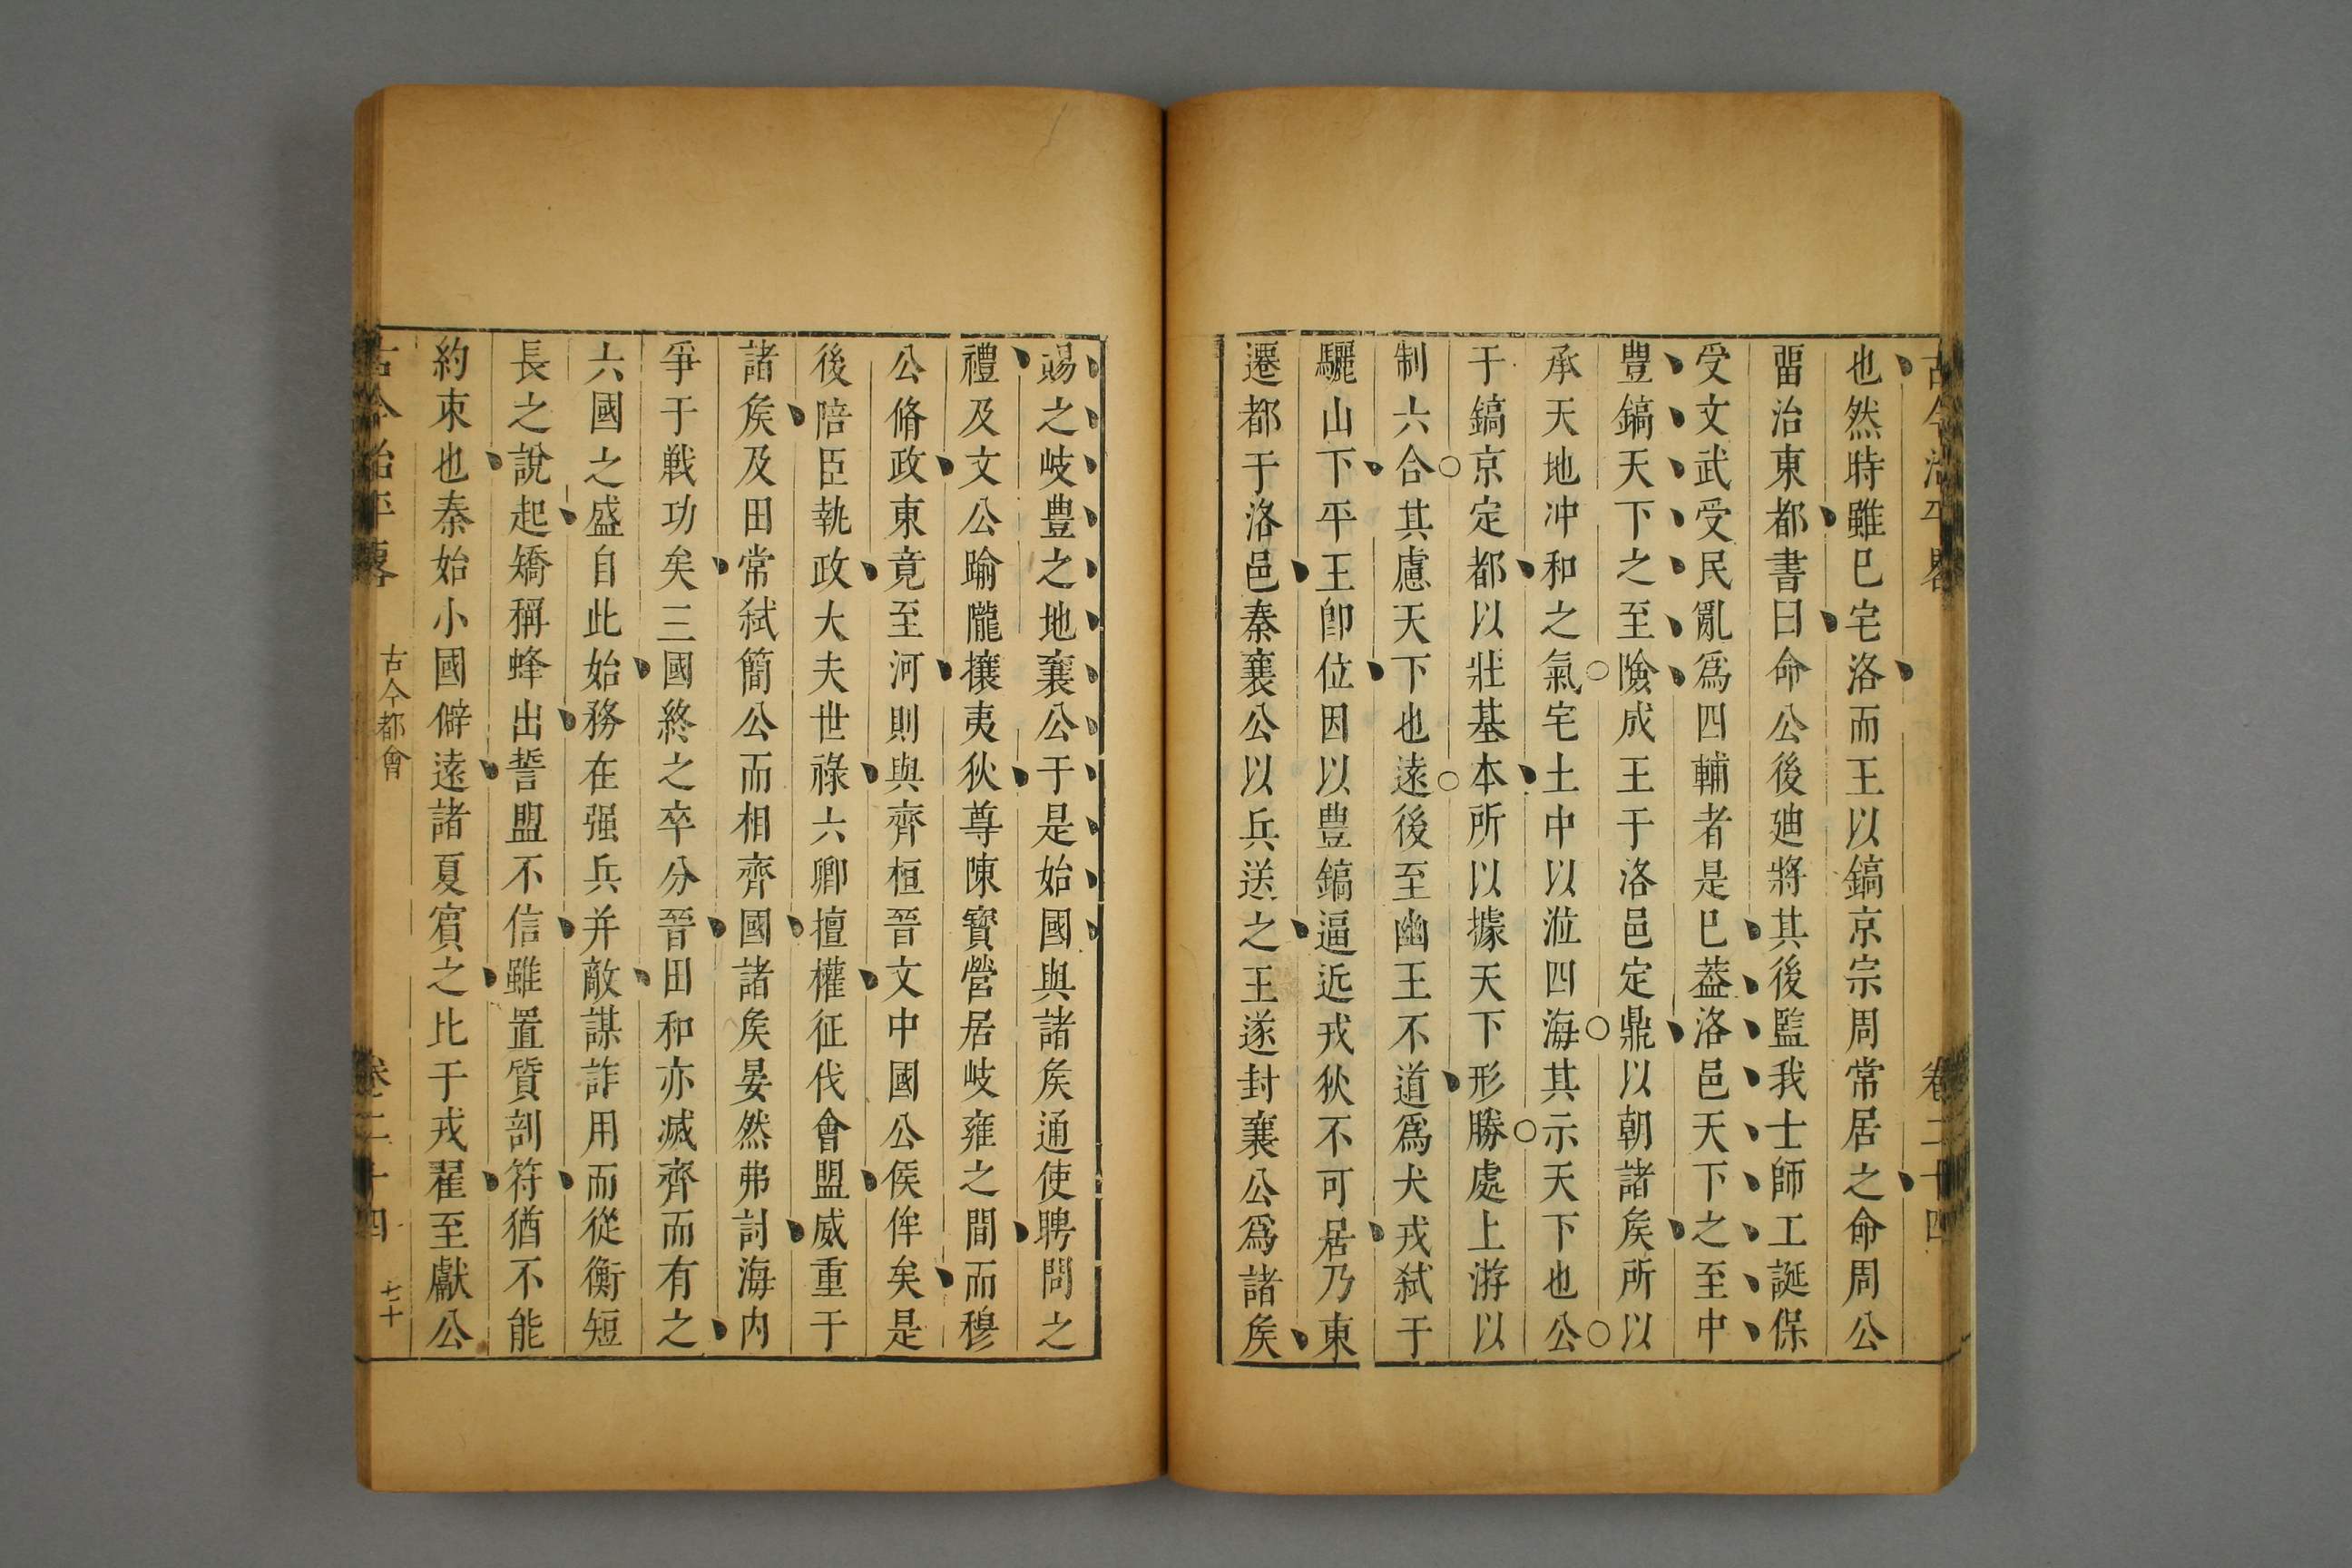 古今治平畧 卷二十四
也然時雖巳宅洛而王以鎬京宗周常居之命周公
畱治東都書曰命公後廸將其後監我士師工誕保
受文武受民亂爲四輔者是巳葢洛邑天下之至中
豊鎬天下之至險成王于洛邑定鼎以朝諸矦所以
承天地冲和之氣宅土中以涖四海其示天下也公
于鎬京定都以壯基本所以據天下形勝處上游以
制六合其慮天下也遠後至幽王不道爲犬戎弑于
驪山下平王卽位因以豊鎬逼近戎狄不可居乃東
遷都于洛邑秦襄公以兵送之王遂封襄公爲諸矦
賜之岐豊之地襄公于是始國與諸矦通使聘問之
禮及文公踰隴攘夷狄尊陳寶營居岐雍之間而穆
公脩政東竟至河則與齊桓晉文中國公侯侔矣是
後陪臣執政大夫世祿六卿擅權征伐會盟威重于
諸矦及田常弑簡公而相齊國諸矦晏然弗討海内
爭于戰功矣三國終之卒分晉田和亦滅齊而有之
六國之盛自此始務在强兵并敵謀詐用而從衡短
長之說起矯稱蜂出誓盟不信雖置質剖符猶不能
約束也秦始小國僻遠諸夏賓之比于戎翟至獻公
古今治平畧 古今都會 卷二十四 七十